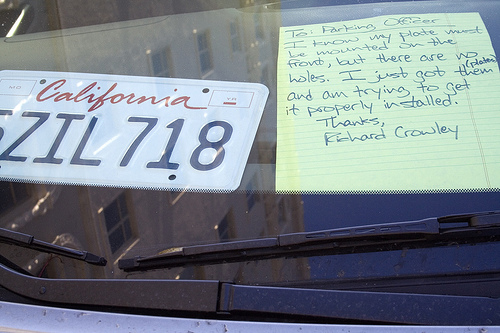 California
ZIL718
To: Parking Officer
I know my plate must
be mounted on the
front, but there are no
holes. I just got them (plates)
and am trying to get
it properly installed.
Thanks,
Richard Crowley